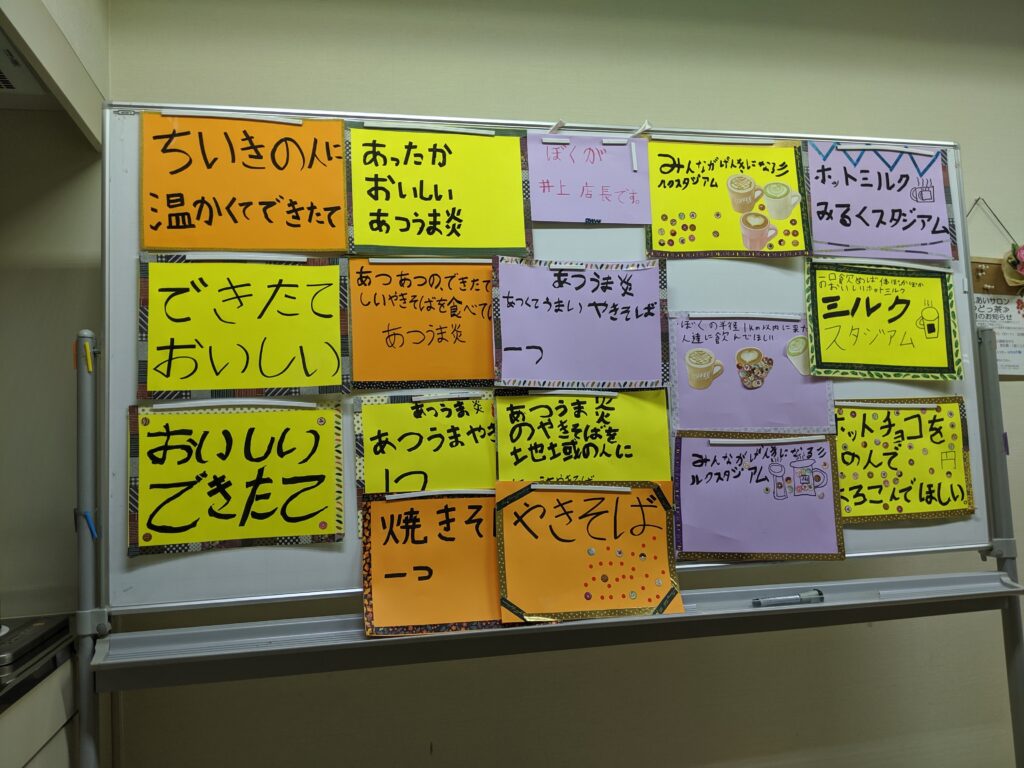 ちいきの人に
温かくてできたて
あったか
おいしい
あつうま炎
ぼくが
井上店長です。
みんながげんきになる
スタジアム
ホットミルク
みるくスタジアム
できたて
おいしい
あつあつの、できたて
しいやきそばを食べて
あつうま炎
あつうま炎
あつくてうまいやきそば
一つ
ぼくの半径1km以内に
人達に飲んでほしい
一口飲めば体ぽかぽか
のおいしいホットミルク
ミルク
スタジアム
おいしい
できたて
あつうま炎
あつうまやき
あつうま炎
のやきそばを
地域の人に
みんながげんきになる
ルクスタジアム
ットチョコを
のんで
よろこんでほしい
焼きそ
一つ
やきそば
COFFEE
COFFEE
COFFEE